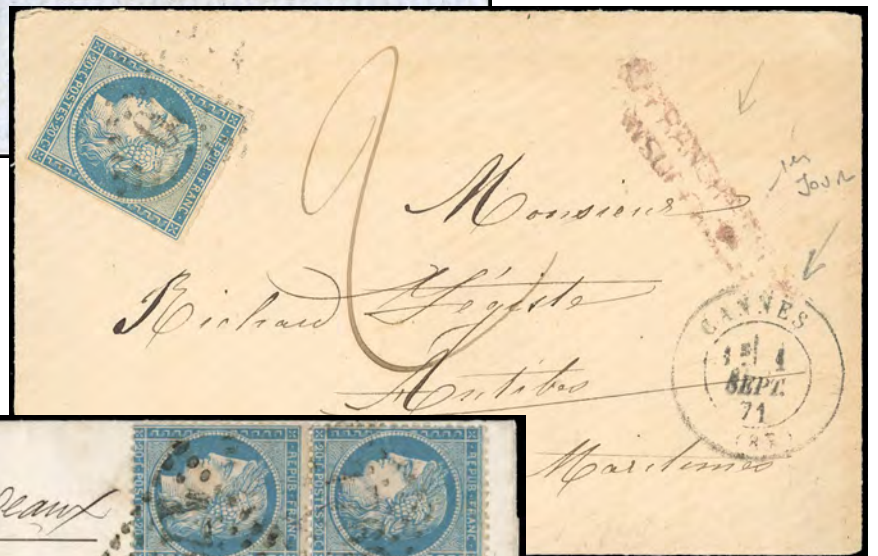 20 C POSTES 20 C
REPUB. FRANC.
2
AFFRANCHISSEMENT
INSUFFISANT
1er
Jour
Monsieur
Richard Légiste
Antibes
Maritimes
CANNES
1
SEPT.
71
(87)
deaux
REPUB. FRANC.
REPUB. FRANC.